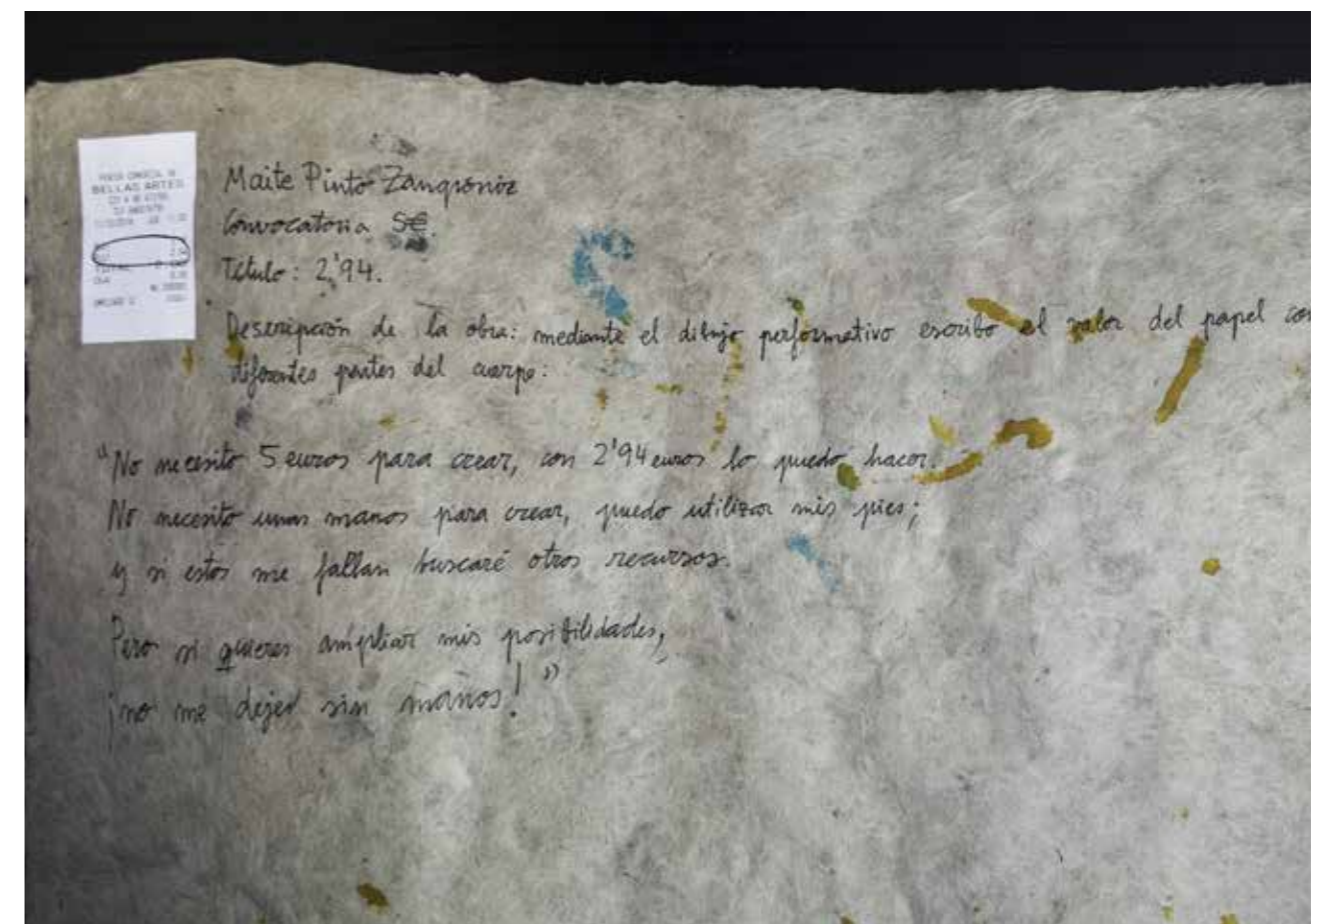 BELLAS ARTES
Maite Pinto Zangroniz
Convocatoria 5€.
Título: 2'94.
Descripción de la obra: mediante el dibujo performativo escribo el valor del papel con
diferentes partes del cuerpo:
"No necesito 5 euros para crear, con 2'94 euros lo puedo hacer.
No necesito unas manos para crear, puedo utilizar mis pies;
y si estos me fallan buscaré otros recursos.
Pero si quieres ampliar mis posibilidades,
¡no me dejes sin manos!"